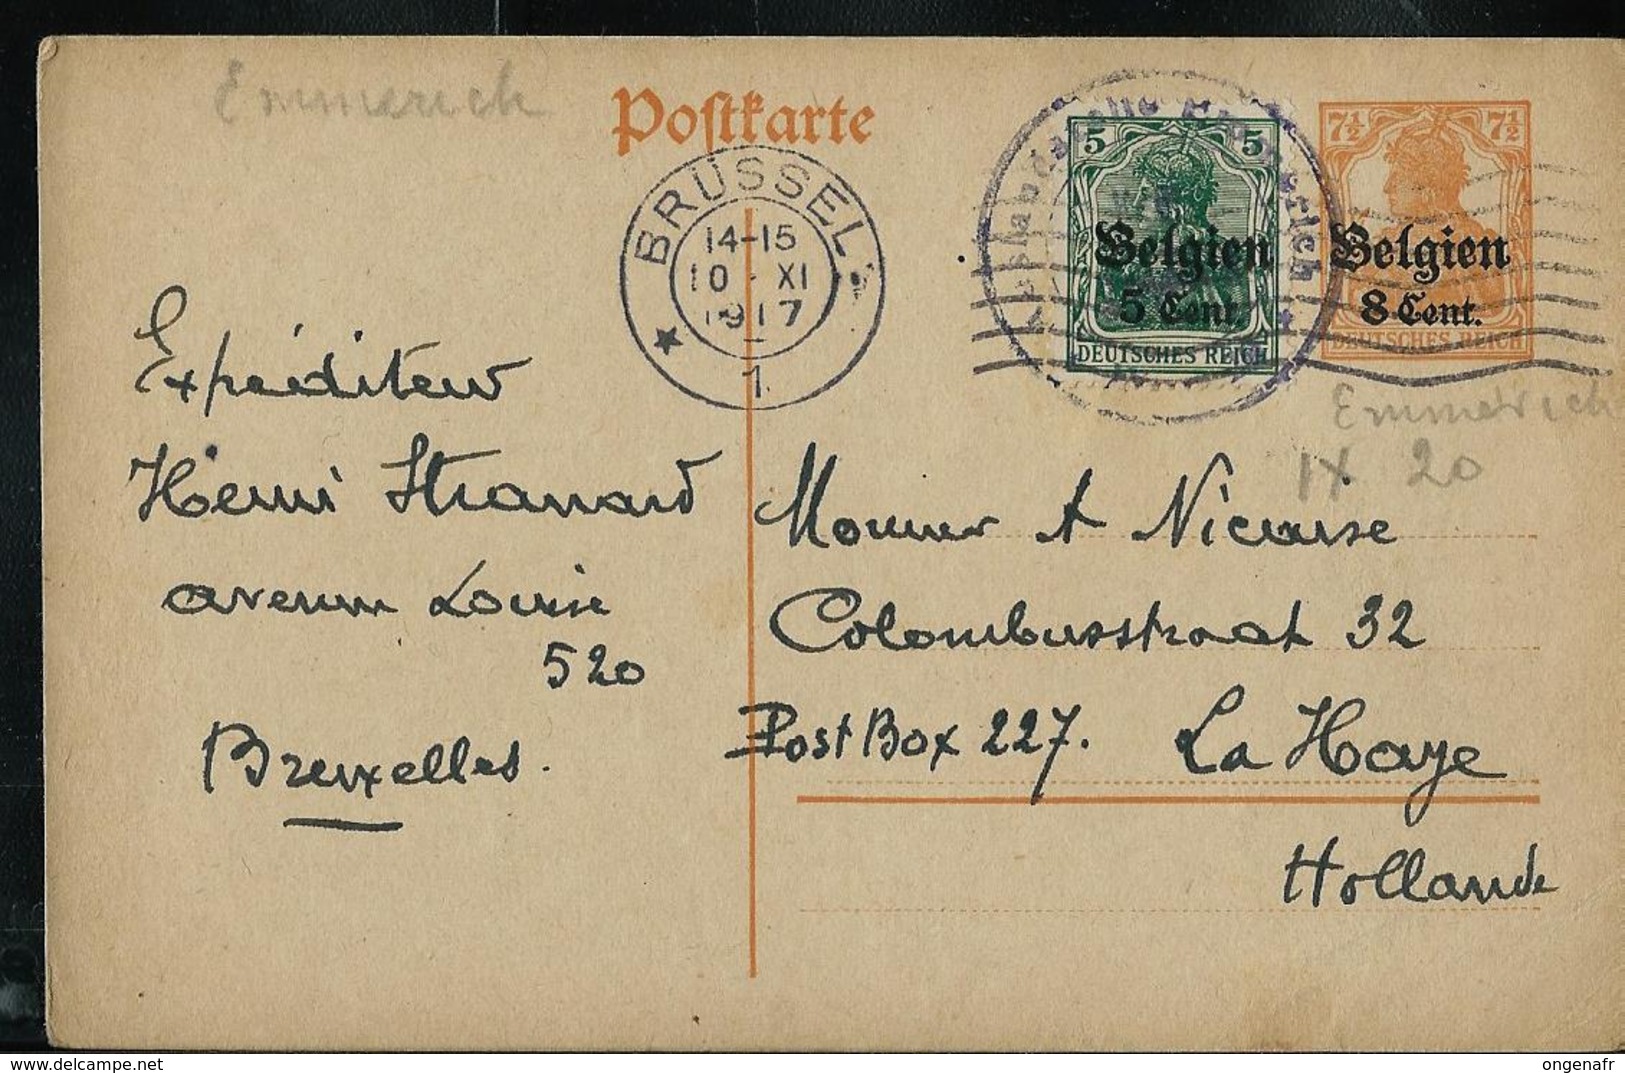 Emmerich
Postkarte
BRÜSSEL
14-15
10 - XI
1917
1
5 5
Belgien
5 Cent
DEUTSCHES REICH
7½ 7½
Belgien
8 Cent.
DEUTSCHES REICH
Emmerich
IX 20
Expéditeur
Henri
avenue Louise
520
Bruxelles.
A
Colombusstraat 32
Post Box 227. La Haye
Hollande
www.delcampe.net
ongenafr